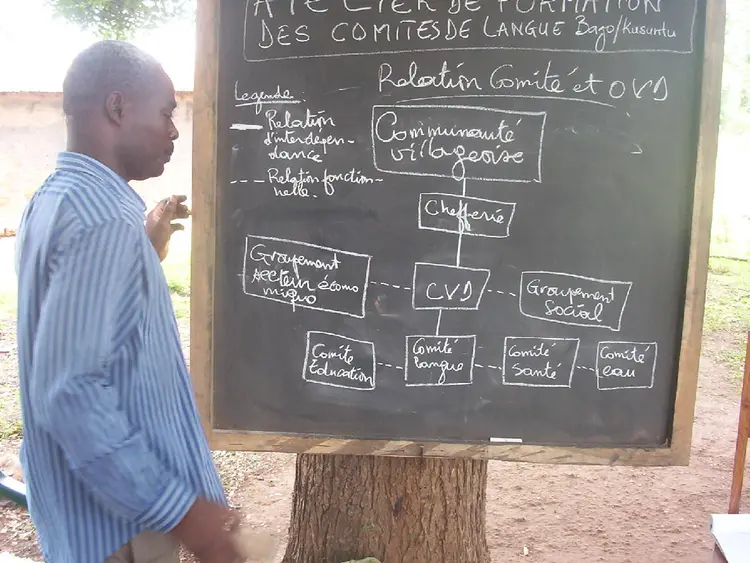 ATELIER DE FORMATION
DES COMITES DE LANGUE Bago/Kusuntu
Relation Comité et OVD
Legende
Relation
d'interdépen-
dance
Relation fonction-
nelle.
Communauté
villageoise
Chefferie
Groupement
Secteur écono
mique
CVD
Groupement
Social
Comité
Éducation
Comité
langue
Comité
Santé
Comité
eau